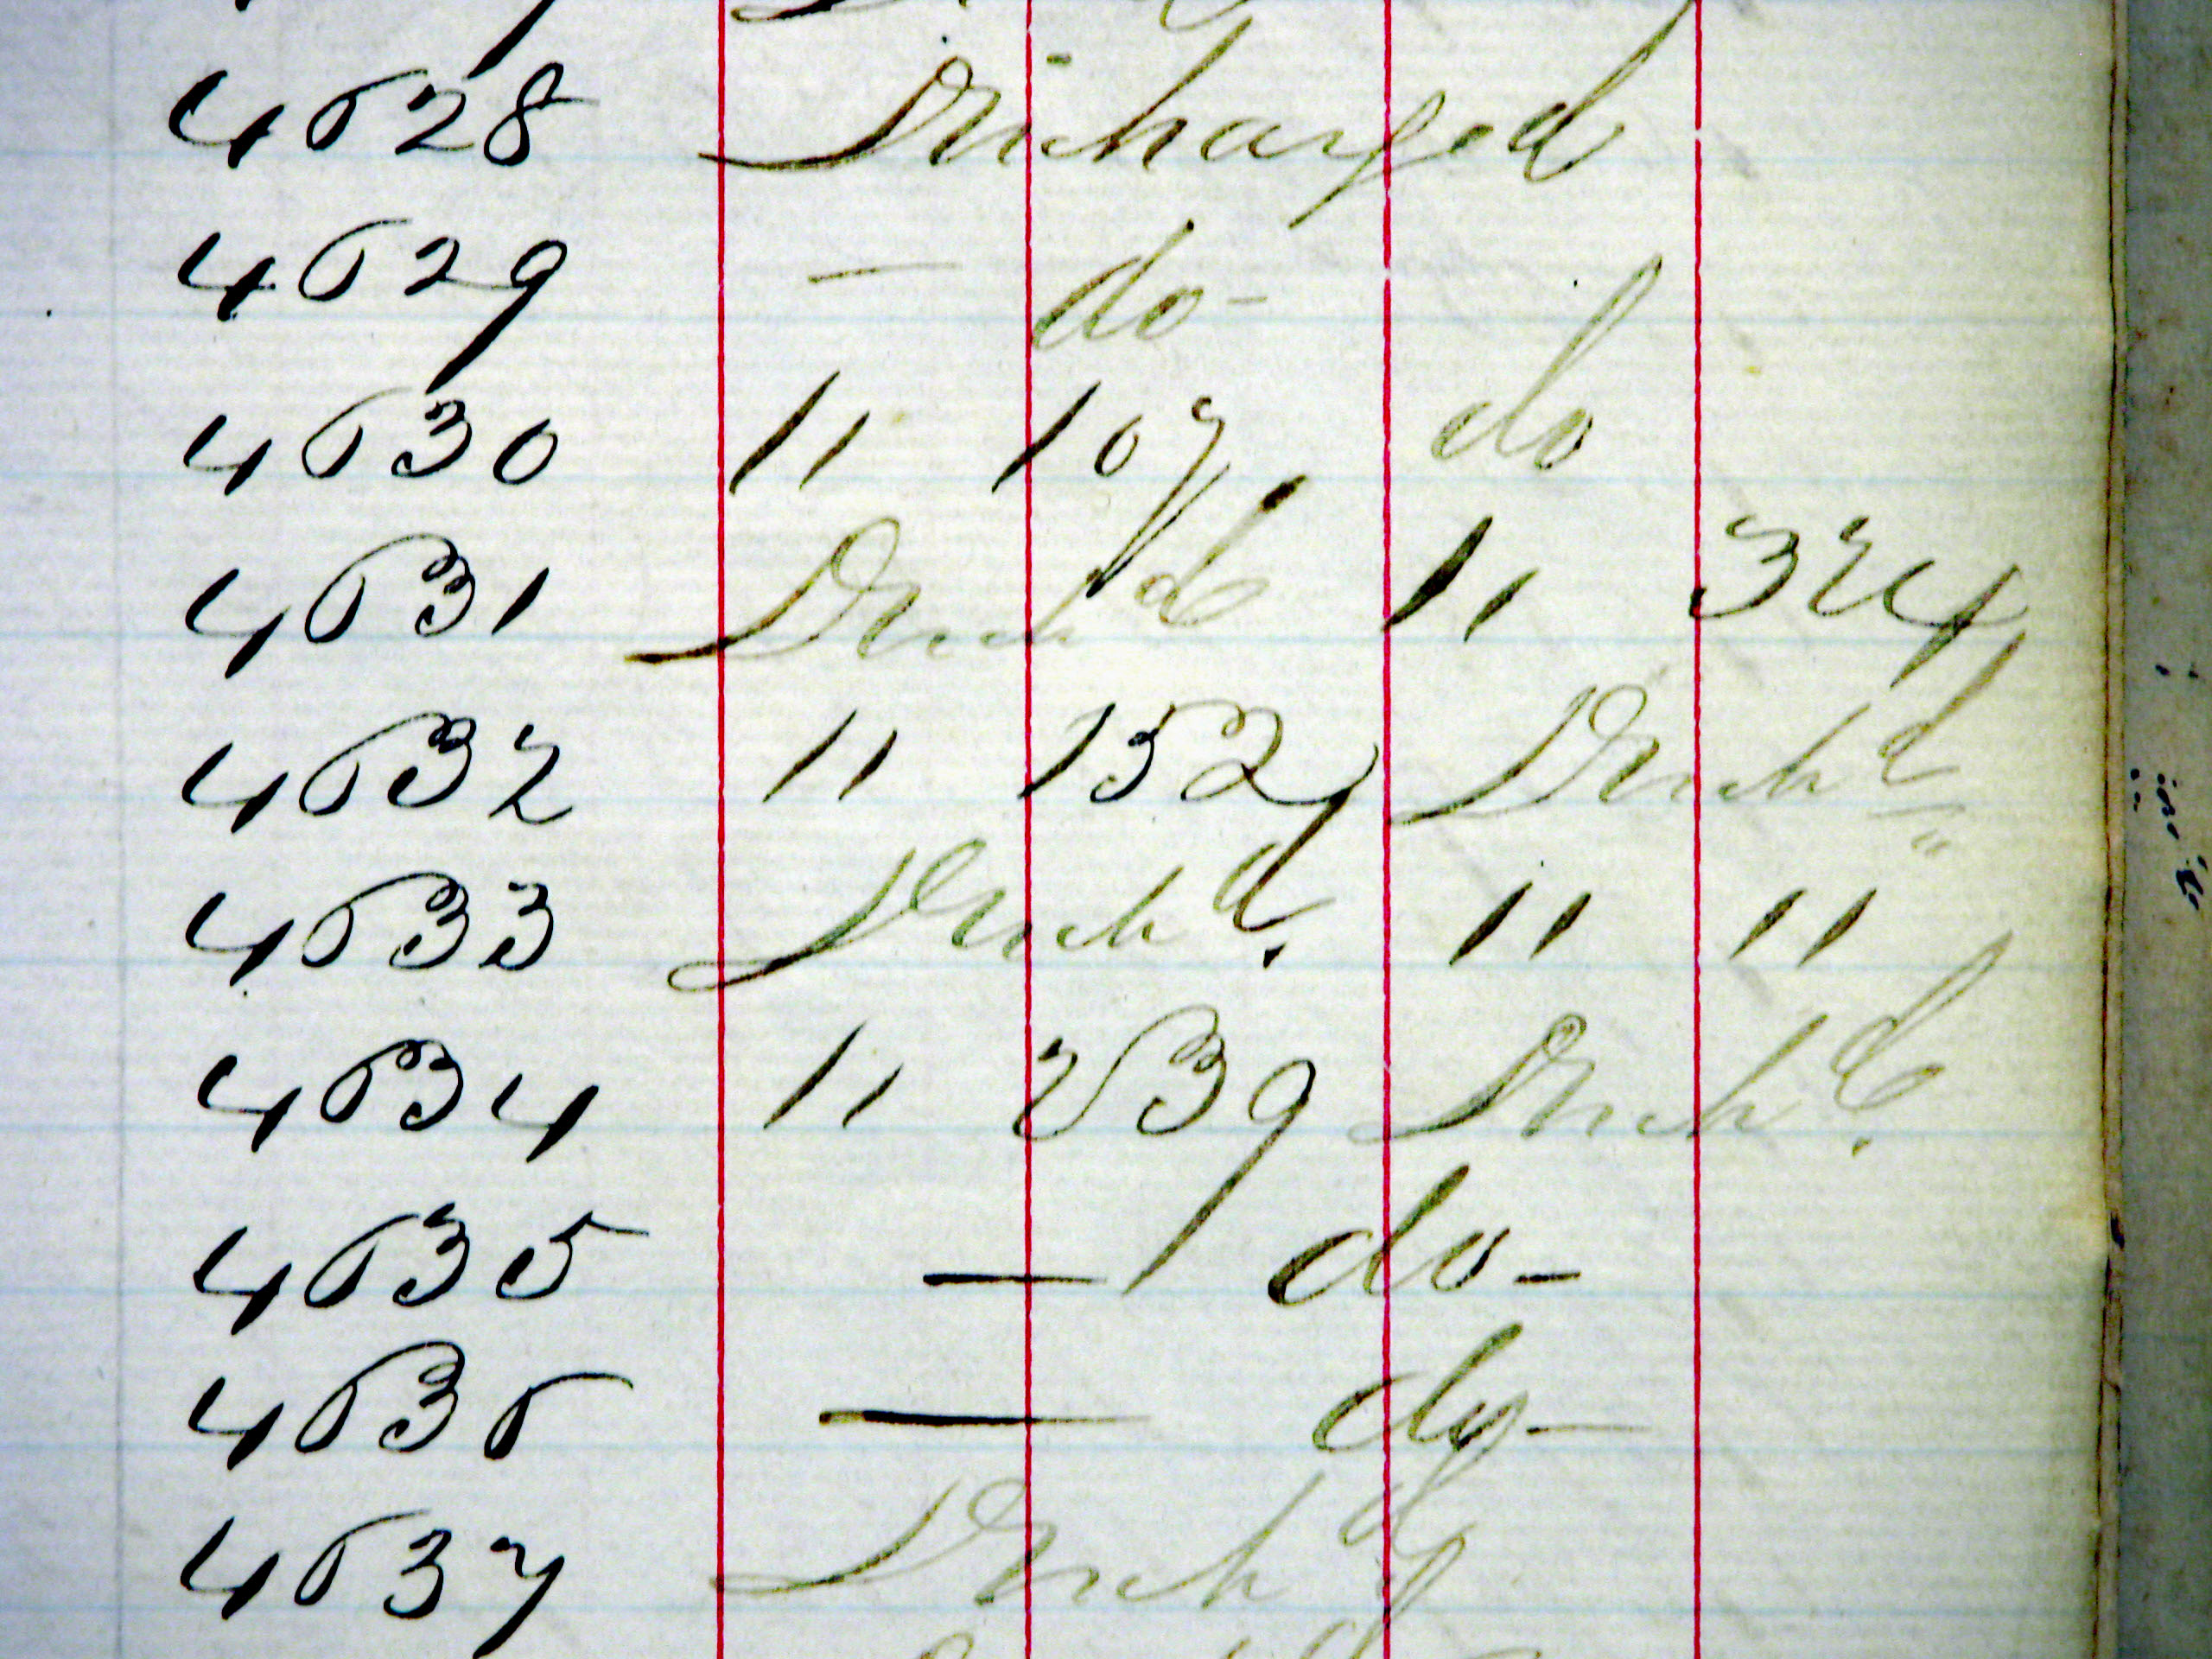 4628 Discharged
4629 — do -
4630 11 107 do
4631 Disch d 11 324
4632 11 152 Disch d "
4633 Disch d. 11 11
4634 11 239 Disch d.
4635 — do -
4636 — do -
4637 Disch d